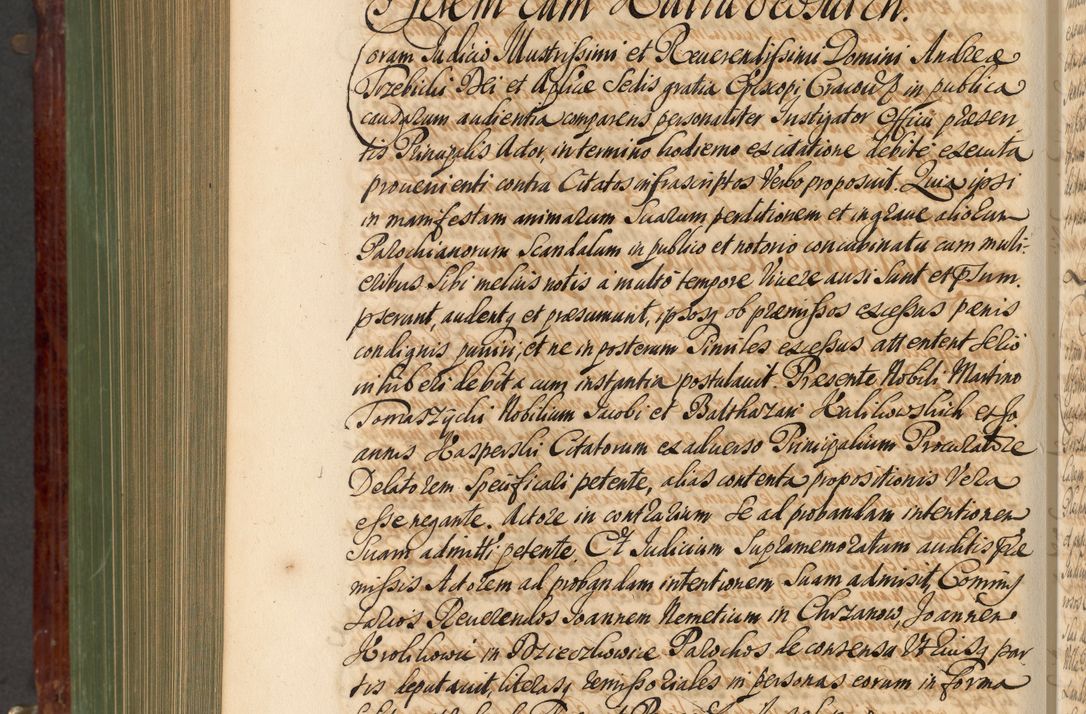 oram Judicio Illustrissimi et Reuerendissimi Domini Andreæ
Trzebicki Dei et Aplicæ Sedis gratia Episcopi Cracou in publica
causarum audientia comparens personaliter Instigator Officii præsen
tis Principalis Actor, in termino hodierno ex citatione debite executa
prouenienti contra Citatos infrascriptos Verbo proposuit. Quia ipsi
in manifestam animarum Suarum perditionem et in graue aliorum
Parochianorum Scandalum in publico et notorio concubinatu cum muli-
eribus Sibi melius notis a multo tempore Viuere ausi Sunt et præsum.
pserunt, audentq et præsumunt, ipsosq ob præmissos excessus pænis
condignis puniri, et ne in posterum Similes excessus attentent Serio
inhiberi debita cum instantia postulauit. Præsente Nobili Martino
Tomaszycki Nobilium Jacobi et Balthazari Kulikowskich et Jo
annis Kasperski Citatorum ex aduerso Principalium Procuratore
Delatorem Specificari petente, alias contenta propositionis Vera
esse negante. Actore in contrarium Se ad probandam intentionem
Suam admitti petente, Et Judicium Supramemoratum auditis Præ
missis Actorem ad probandam intentionem Suam admisit, Commis
Sarios Reuerendos Joannem Nemetium in Chrzanow, Joannem
Krolikowic in Dzieczkowice Parochos de consensu Vtriusq par
tis deputauit, literasq remissoriales in personas eorum in forma